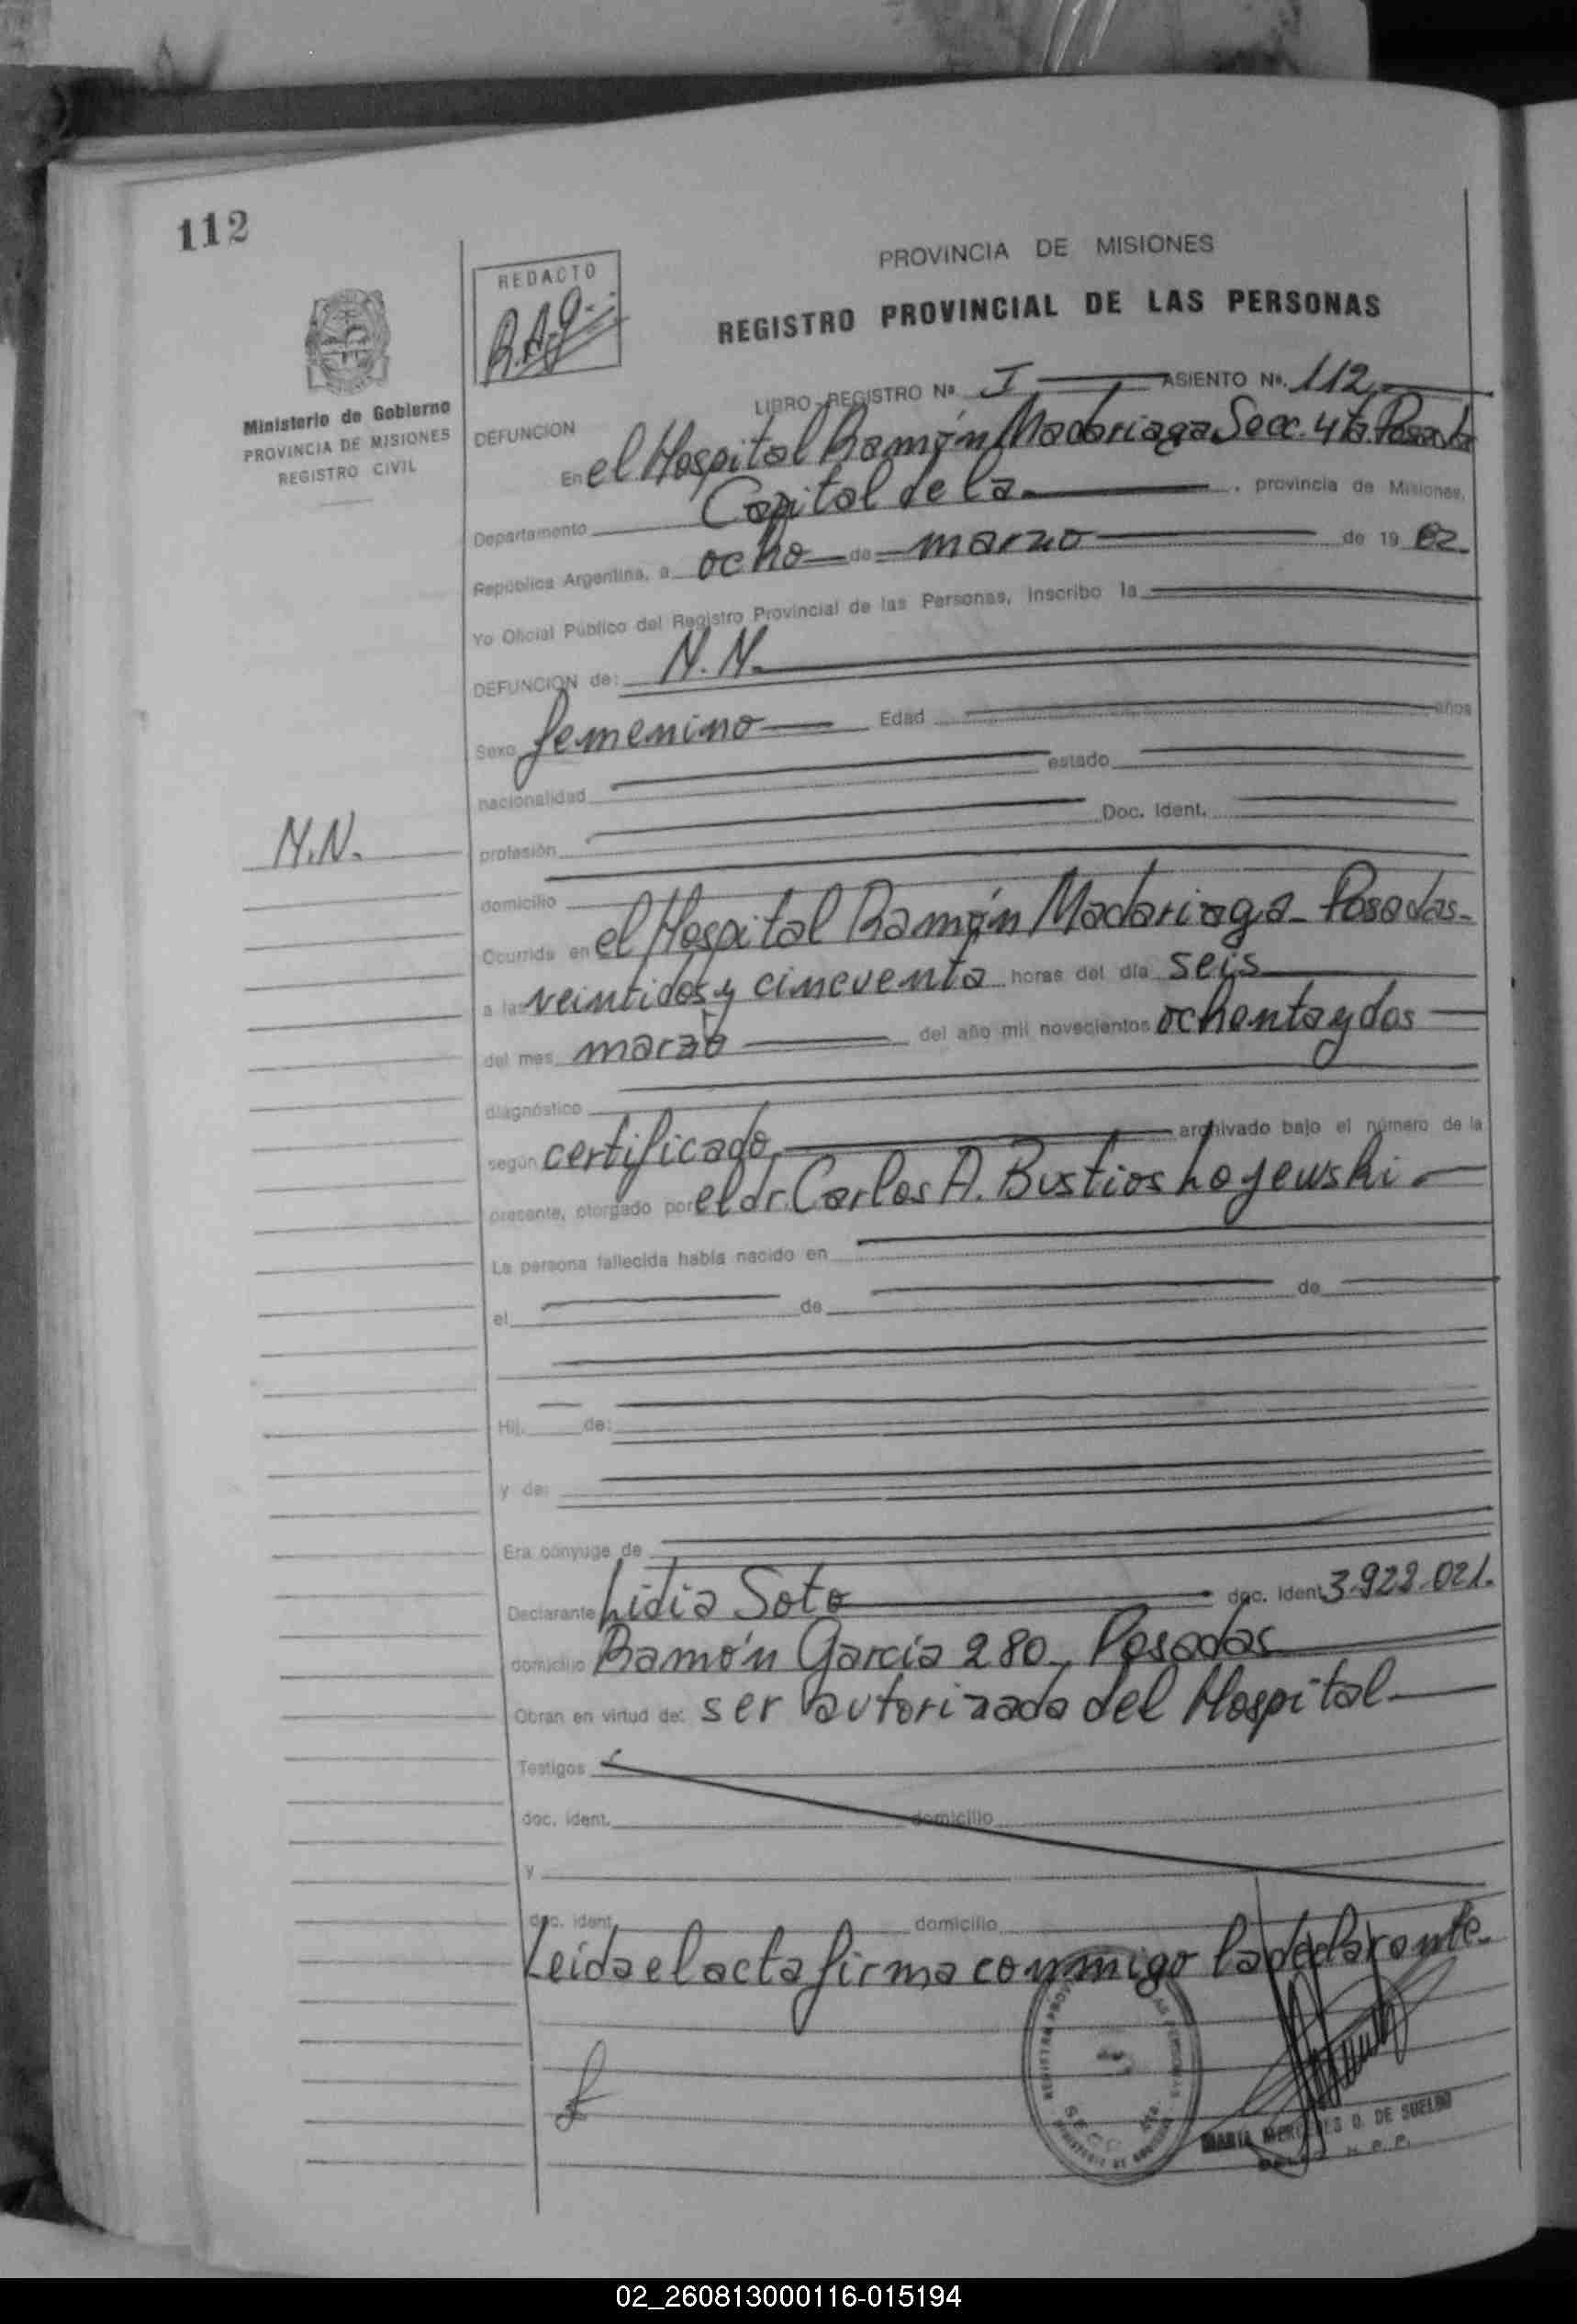 112
REDACTO
R.A.G.
PROVINCIA DE MISIONES
REGISTRO PROVINCIAL DE LAS PERSONAS
Ministerio de Gobierno
PROVINCIA DE MISIONES
REGISTRO CIVIL
LIBRO-REGISTRO Nº I ASIENTO Nº. 112
DEFUNCION
En el Hospital Ramón Madariaga Secc. 4ta. Posadas
Departamento Capital de la , provincia de Misiones,
República Argentina, a ocho de marzo de 19 82
Yo Oficial Público del Registro Provincial de las Personas, inscribo la
DEFUNCION de: N.N.
Sexo femenino Edad años
nacionalidad estado
N.N.
profesión Doc. Ident.
domicilio
Ocurrida en el Hospital Ramón Madariaga - Posadas-
a las veintidos y cincuenta horas del día seis
del mes marzo del año mil novecientos ochenta y dos
diagnóstico
según certificado archivado bajo el número de la
presente, otorgado por el dr. Carlos A. Bustios
La persona fallecida había nacido en
el de de
Hij. de:
y de:
Era cónyuge de
Declarante Lidia Soto doc. Ident 3.922.021.
domicilio Ramón García 280- Posadas
Obran en virtud de: ser autorizada del Hospital
Testigos
doc. ident. domicilio
y
doc. ident. domicilio
Leida el acta firma conmigo la declarante.
MARIA MERCEDES O. DE SUELDO
02_260813000116-015194